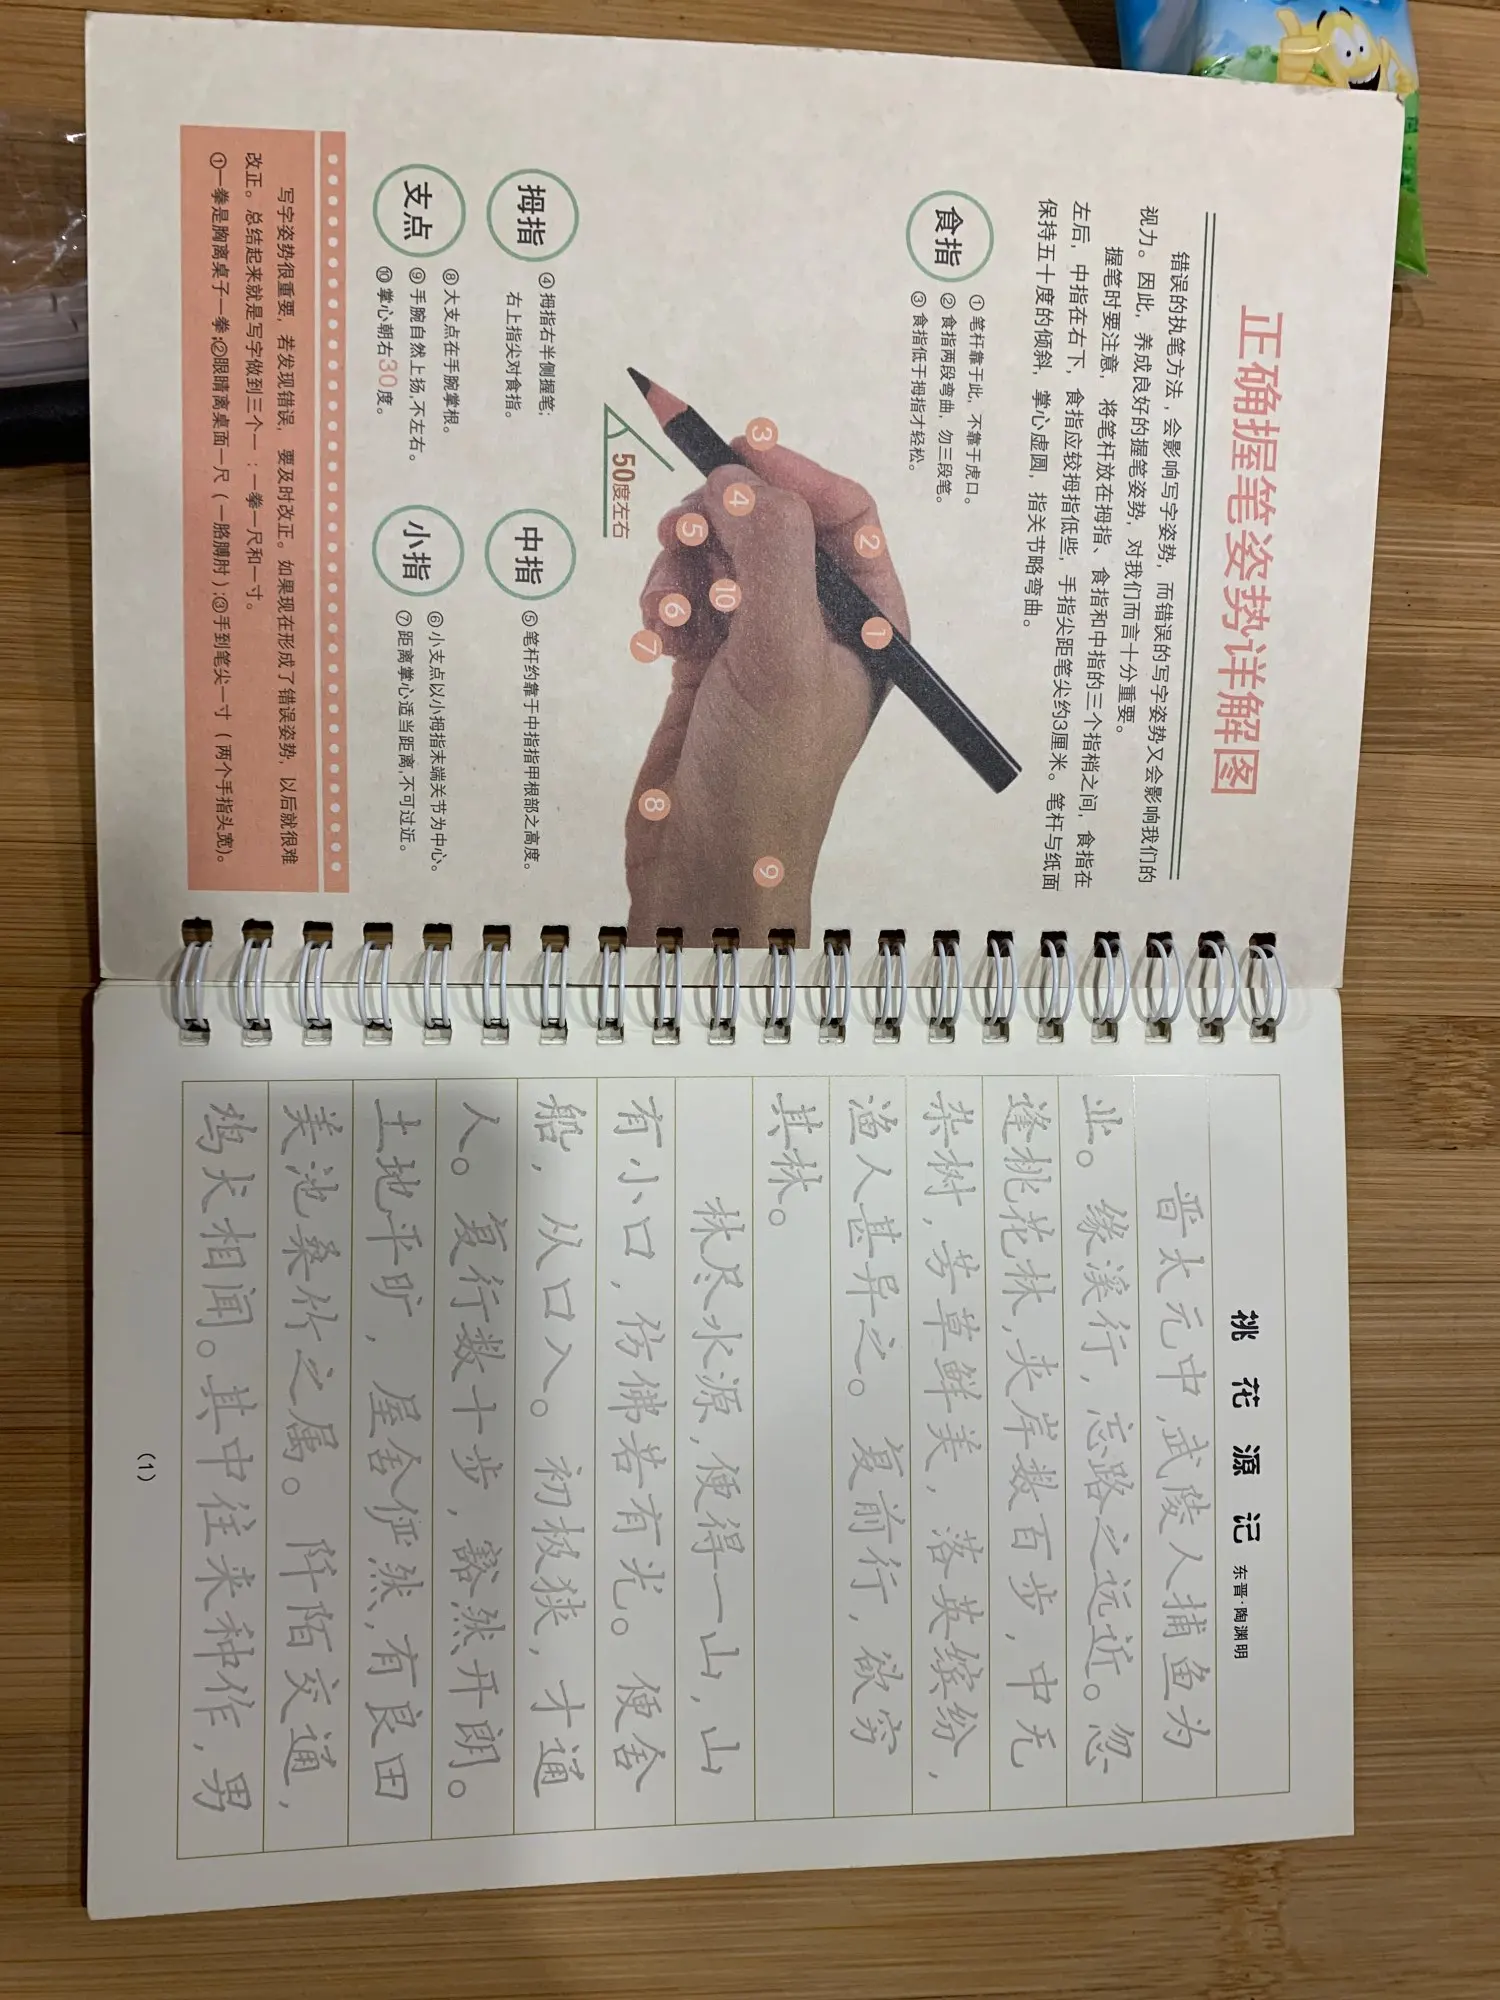 正确握笔姿势详解图
错误的执笔方法，会影响写字姿势，而错误的写字姿势又会影响我们的
视力。因此，养成良好的握笔姿势，对我们而言十分重要。
握笔时要注意，将笔杆放在拇指、食指和中指的三个指梢之间，食指在
左后，中指在右下，食指应较拇指低些，手指尖距笔尖约3厘米。笔杆与纸面
保持五十度的倾斜，掌心虚圆，指关节略弯曲。
食指
①笔杆靠于此，不靠于虎口。
②食指两段弯曲，勿三段笔。
③食指低于拇指才轻松。
3
2
4
1
5
10
6
7
8
9
50度左右
拇指
④拇指右半侧握笔；
右上指尖对食指。
中指
⑤笔杆约靠于中指指甲根部之高度。
支点
⑧大支点在手腕掌根。
⑨手腕自然上扬,不左右。
⑩掌心朝右30度。
小指
⑥小支点以小拇指末端关节为中心。
⑦距离掌心适当距离,不可过近。
写字姿势很重要，若发现错误，要及时改正。如果现在形成了错误姿势，以后就很难
改正。总结起来就是写字做到三个一：一拳一尺和一寸。
①一拳是胸离桌子一拳;②眼睛离桌面一尺（一胳膊肘）;③手到笔尖一寸（两个手指头宽)。
桃花源记 东晋·陶渊明
晋太元中,武陵人捕鱼为
业。缘溪行，忘路之远近。忽
逢桃花林,夹岸数百步，中无
杂树，芳草鲜美，落英缤纷，
渔人甚异之。复前行，欲穷
其林。
林尽水源,便得一山,山
有小口，仿佛若有光。便舍
船，从口入。初极狭，才通
人。复行数十步，豁然开朗。
土地平旷，屋舍俨然,有良田
美池桑竹之属。阡陌交通，
鸡犬相闻。其中往来种作，男
（1）